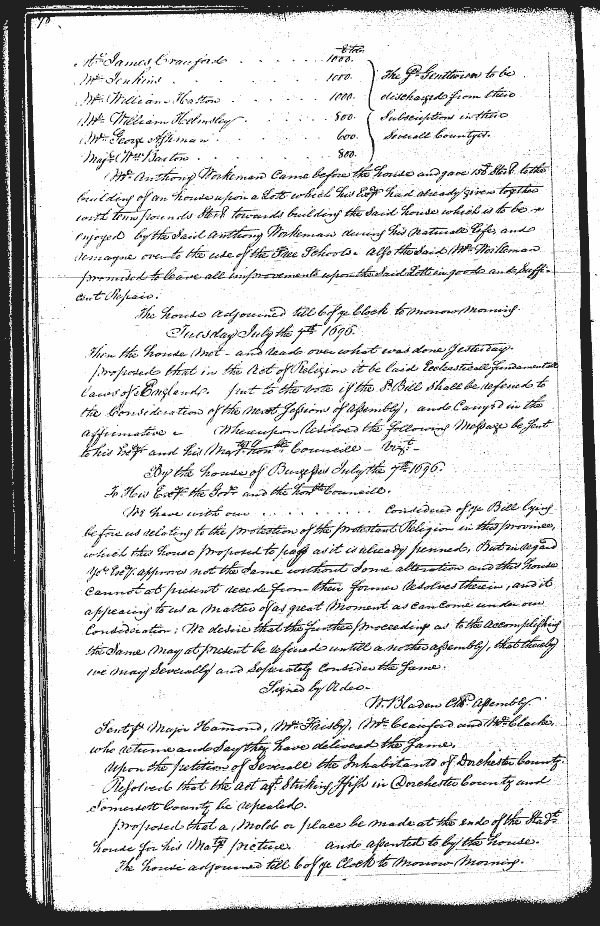 70
lb Tob
Mr. James Crawford . . . . . . 1000.
Mr. Jenkins . . . . . . 1000. The sd. Gentlemen to be
Mr. William Hatton . . . . . . 1000. discharged from their
Mr. William Helmsley . . . . . . 800. Subscription in their
Mr. George Ashman . . . . . . 600. Severall Countyes.
Majr. Wm. Barton . . . . . . 800.
Mr. Anthony Workeman came before the house and gave 150 Sterl. to the
building of an house upon a Lott which his Exy. had already given together
with tenn pounds Sterl towards building the said house which is to be
enjoyed by the said Anthony Workeman dureing his naturall Life, and
remayne over to the use of the Free Schools. Also the said Mr. Workeman
promised to leave all improvements upon the said Lott in good and Suffi-
cent Repair.
The house adjourned till 6 of ye Clock to morrow morning.
Tuesday July the 7th 1696.
Then the house Met - and read over what was done Yesterday.
proposed that in the Act of Religion it be laid Ecclesiasticall fundamentall
Laws of England. put to the vote if the sd Bill shall be referred to
the Consideration of the next Sessions of Assembly, and Carryed in the
affirmative - Whereupon Resolved the following Message be sent
to his Exy. and his Matys. honble. Councill - Vizt.-
By the house of Burgesses July the 7th 1696.
To His Exy. the Govr. and the honble Councill.
We have with our . . . . . . . . . . . Considered of ye Bill lying
before us relating to the protection of the protestant Religion in this province,
which this house proposed to pass as it is already penned, But in regard
Yor. Exy. approves not the Same without Some alteration and this house
Cannot at present recede from their former Resolves therein, and it
appearing to us a Matter of as great Moment as can come under our
Consideration: We desire that the further proceeding as to the accomplishing
the Same may at present be deferred untill another Assembly, that thereby
we may Severally and Seperately Consider the Same.
Signed by Order.
W. Bladen Clk. Assembly
Sent p Major Hamond, Mr. Frisby, Mr. Crawford and Mr. Clarke,
who returne and Say they have delivered the Same.
Upon the petition of Severall the Inhabitants of Dorchester County.
Resolved that the Act agt. Striking ffish in Dorchester County and
Somersett County be repealed.
proposed that a Mold or place be made at the end of the Stadt
house for his Matys picture. and assented to by the house.
The house adjourned till 6 of ye Clock to Morrow Morning.